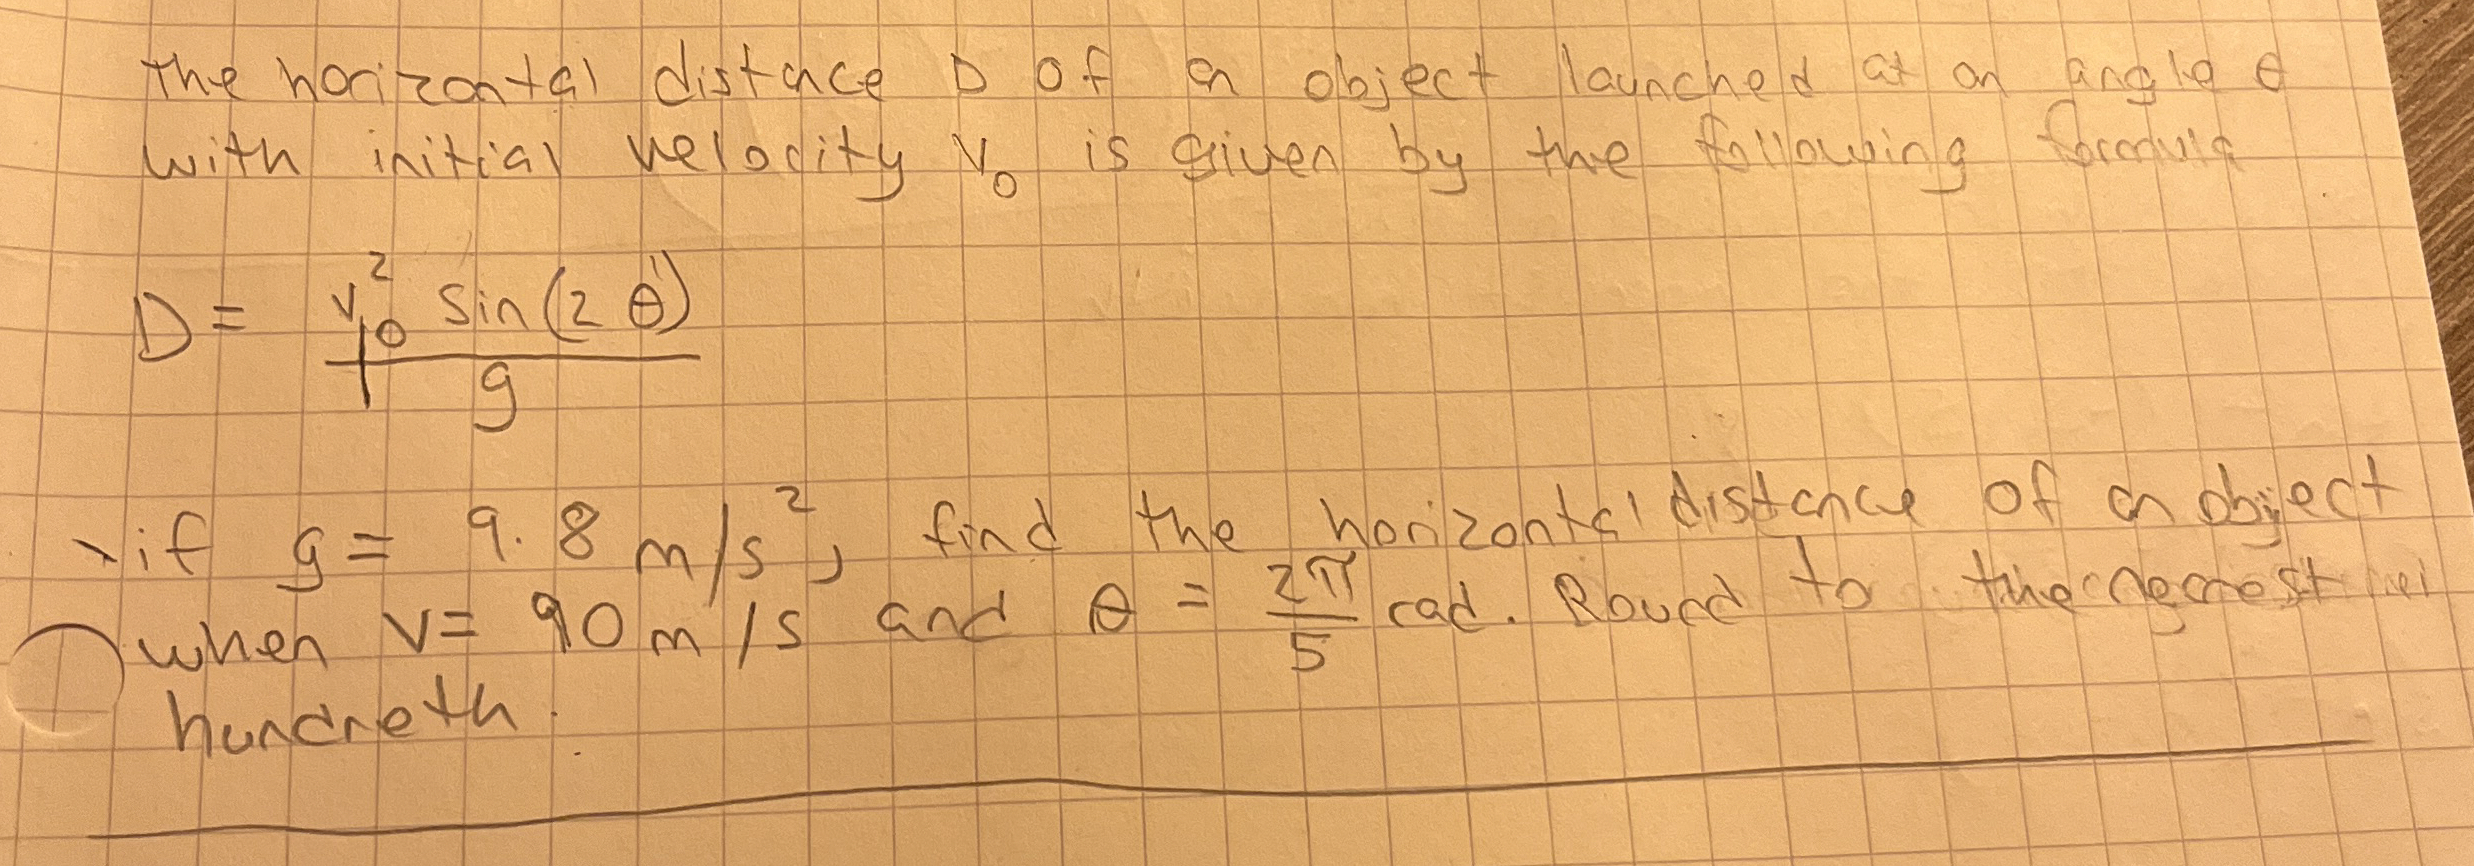 the horizontal distance D of an object launched at an angle θ
with initial velocity v₀ is given by the following formula
D = v₀² sin(2θ) / g
if g = 9.8 m/s², find the horizontal distance of an object
when v = 90 m/s and θ = 2π/5 rad. Round to the nearest
hundreth.